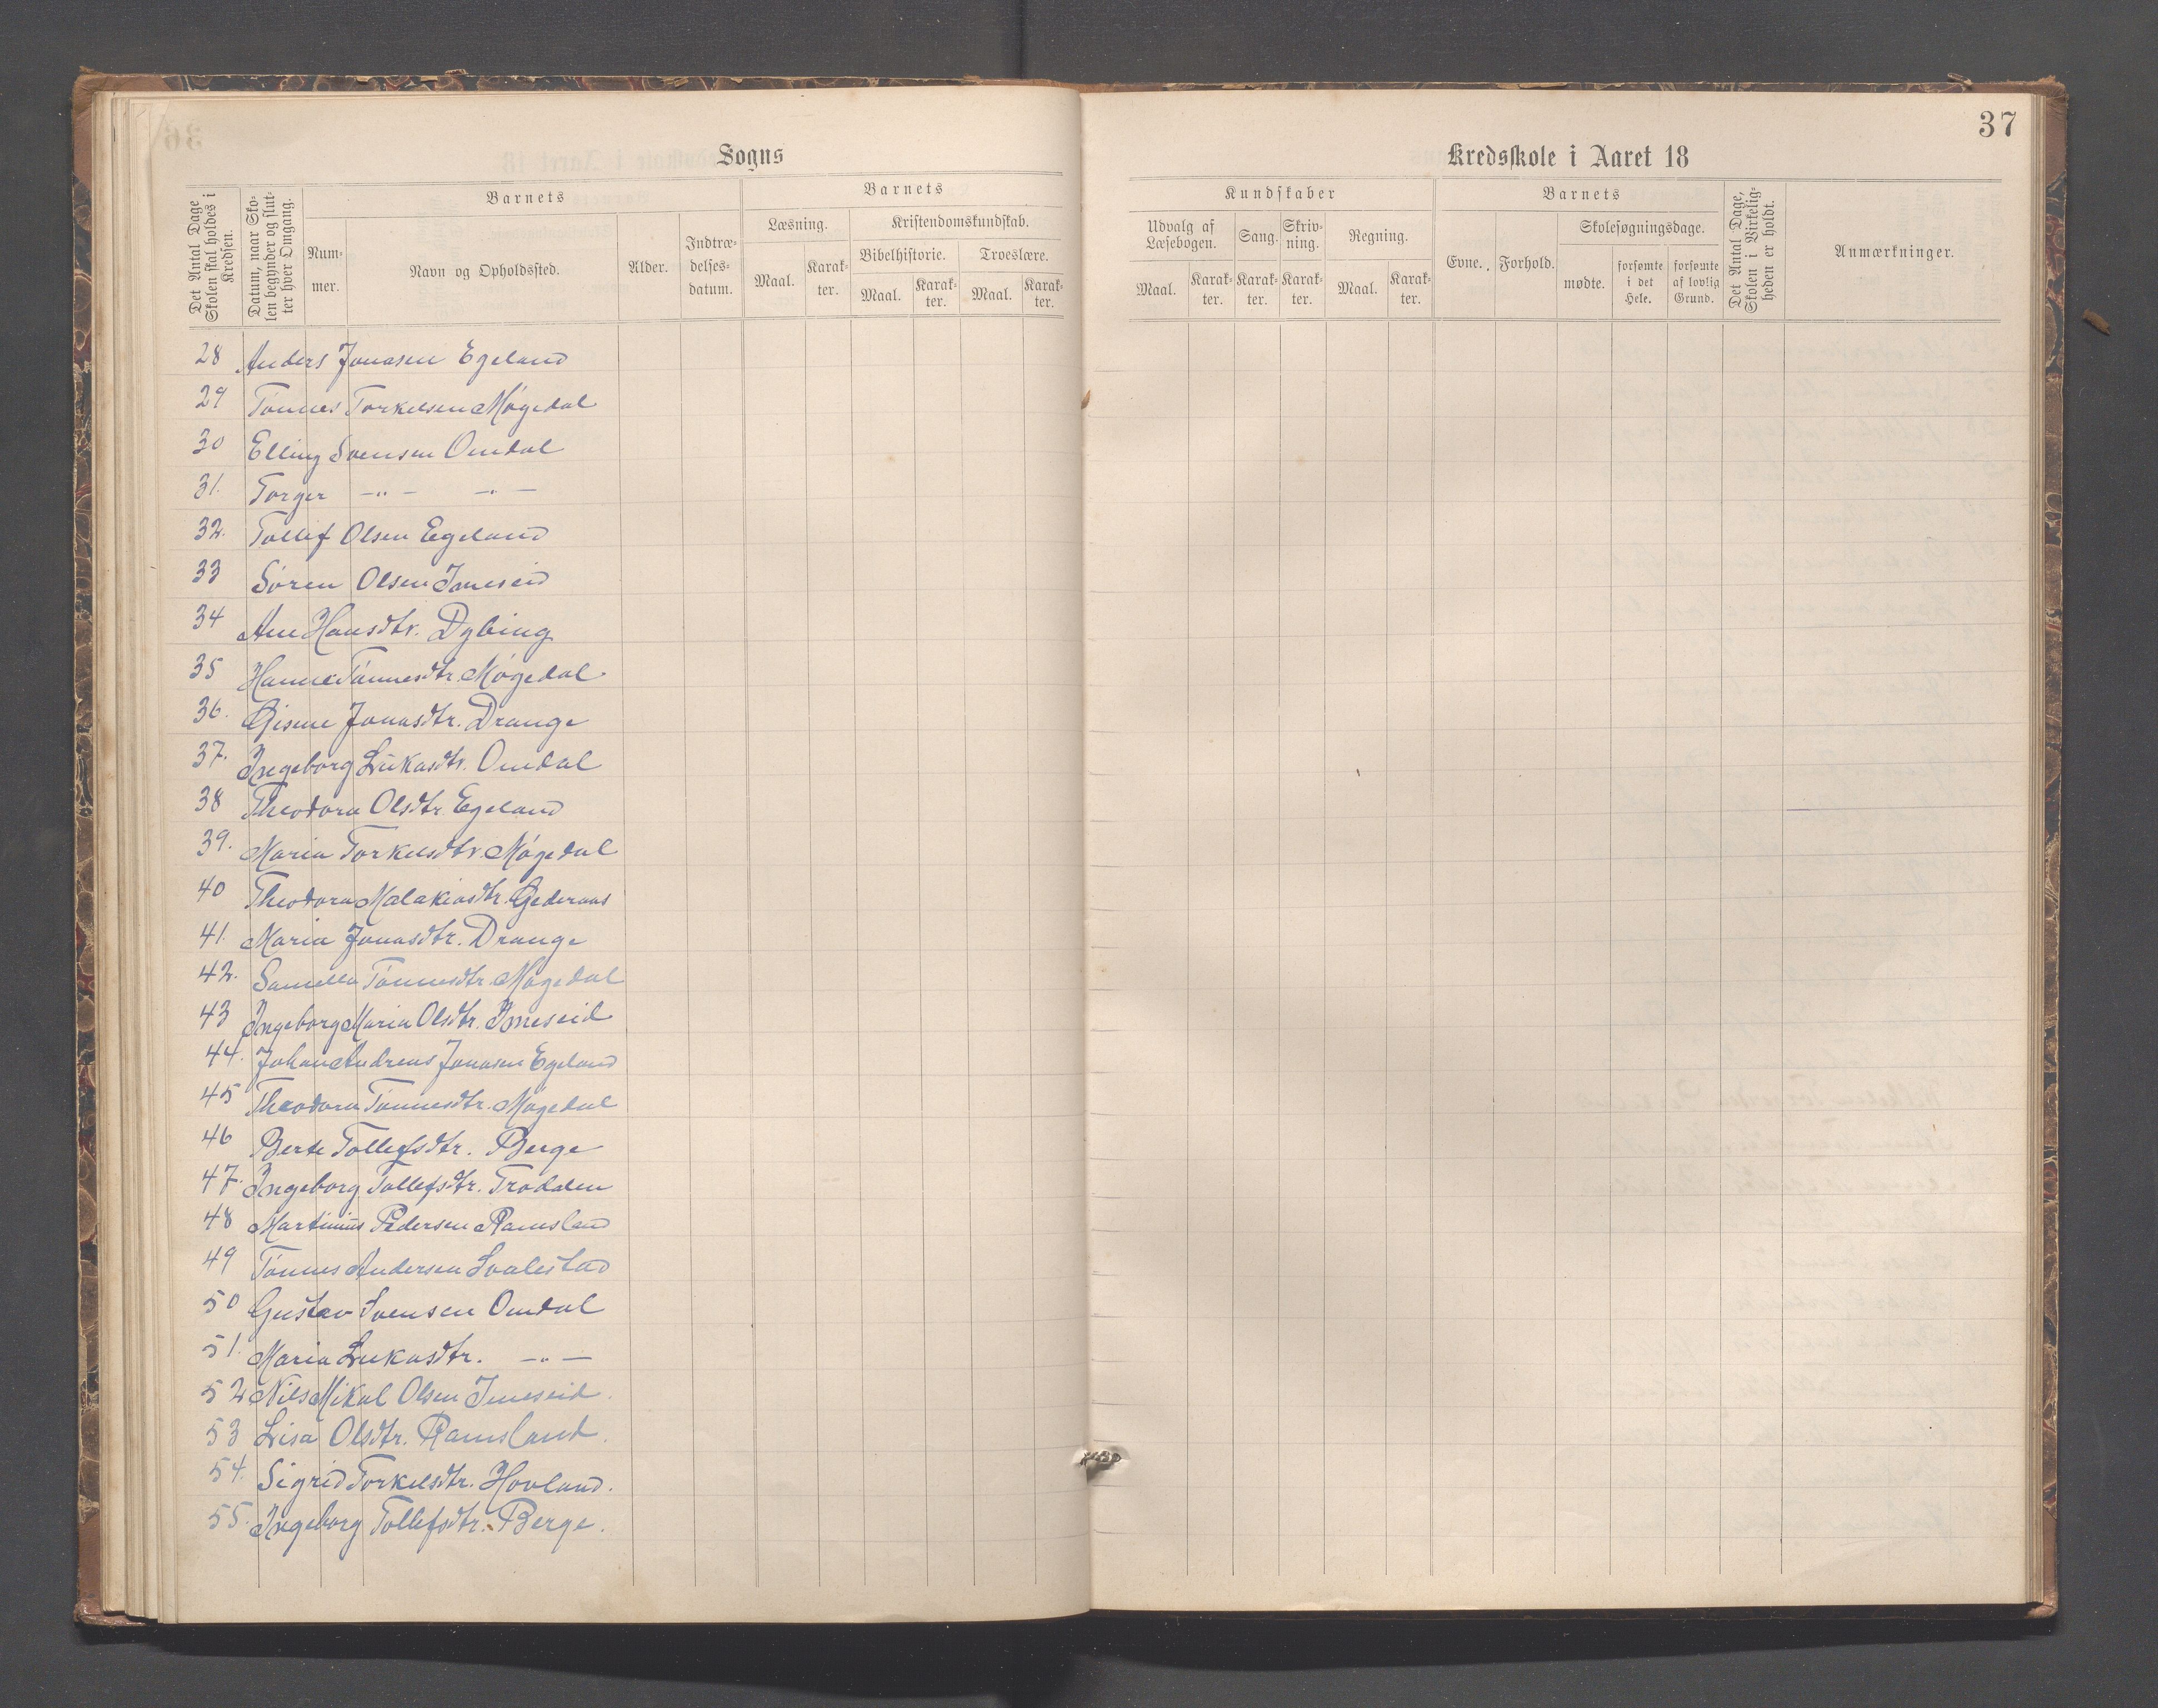 37
Sogns
Kredsskole i Aaret 18
Det Antal Dage Skolen skal holdes i Kredsen.
Datum, naar Skolen begynder og slutter hver Omgang.
Barnets
Nummer.
Navn og Opholdssted.
Alder.
Indtrædelsesdatum.
Barnets
Læsning.
Maal.
Karakter.
Kristendomskundskab.
Bibelhistorie.
Maal.
Karakter.
Troeslære.
Maal.
Karakter.
Kundskaber
Udvalg af Læsebogen.
Maal.
Karakter.
Sang.
Karakter.
Skrivning.
Karakter.
Regning.
Maal.
Karakter.
Barnets
Evne.
Forhold.
Skolesøgningsdage.
mødte.
forsømte i det Hele.
forsømte af lovlig Grund.
Det Antal Dage, Skolen i Virkeligheden er holdt.
Anmærkninger.
28 Anders Jonasen Egeland
29 Tönnes Torkelsen Mögedal
30 Elling Svensen Omdal
31. Torger —„— —„—
32. Tollef Olsen Egeland
33 Sören Olsen Imeseid
34 Ane Hansdtr. Dybing
35 Hanne Tönnesdtr. Mögedal
36. Gisene Jonasdtr. Drange
37. Ingeborg Lukasdtr. Omdal
38 Theodora Olsdtr. Egeland
39. Maria Torkelsdtr. Mögedal
40 Theodora Malakiasdtr. Gederaas
41. Maria Jonasdtr. Drange
42. Samella Tönnesdtr. Mögedal
43 Ingeborg Maria Olsdtr. Imeseid
44. Johan Andreas Jonasen Egeland
45 Theodora Tönnesdtr. Mögedal
46 Berte Tollefsdtr. Berge
47. Ingeborg Tollefsdtr. Trodalen
48 Martinius Pedersen Ramsland
49 Tönnes Andersen Svalestad
50 Gustav Svensen Omdal
51. Maria Lukasdtr. —„—
52 Nils Mikal Olsen Imeseid.
53 Lisa Olsdtr. Ramsland.
54. Sigrid Torkelsdtr. Hovland.
55. Ingeborg Tollefsdtr. Berge.